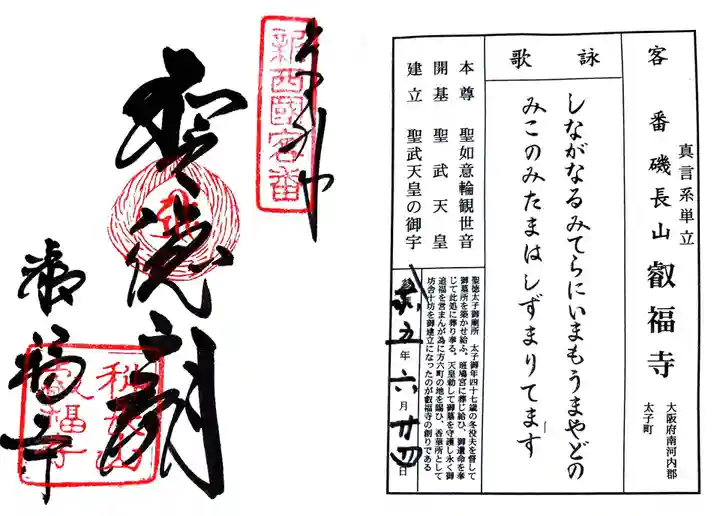 客番 磯長山 叡福寺
真言系単立
大阪府南河内郡
太子町
詠歌
しながなるみてらにいまもうまやどの
みこのみたまはしずまりてます
本尊 聖如意輪観世音
開基 聖武天皇
建立 聖武天皇の御宇
聖徳太子御廟所 太子御年四十七歳の冬役夫を督して
御墓所を築かせ給ふ。斑鳩宮に薨じ給ひ、御遺命を奉
じて此処に葬り奉る。天皇勅して御墓を守護し永く御
追福を営まんが為に方六町の地を賜ひ、香華所として
坊舎十坊を御建立になったのが叡福寺の創りである
五年六月廿四日
新西國客番
聖徳廟
叡福寺